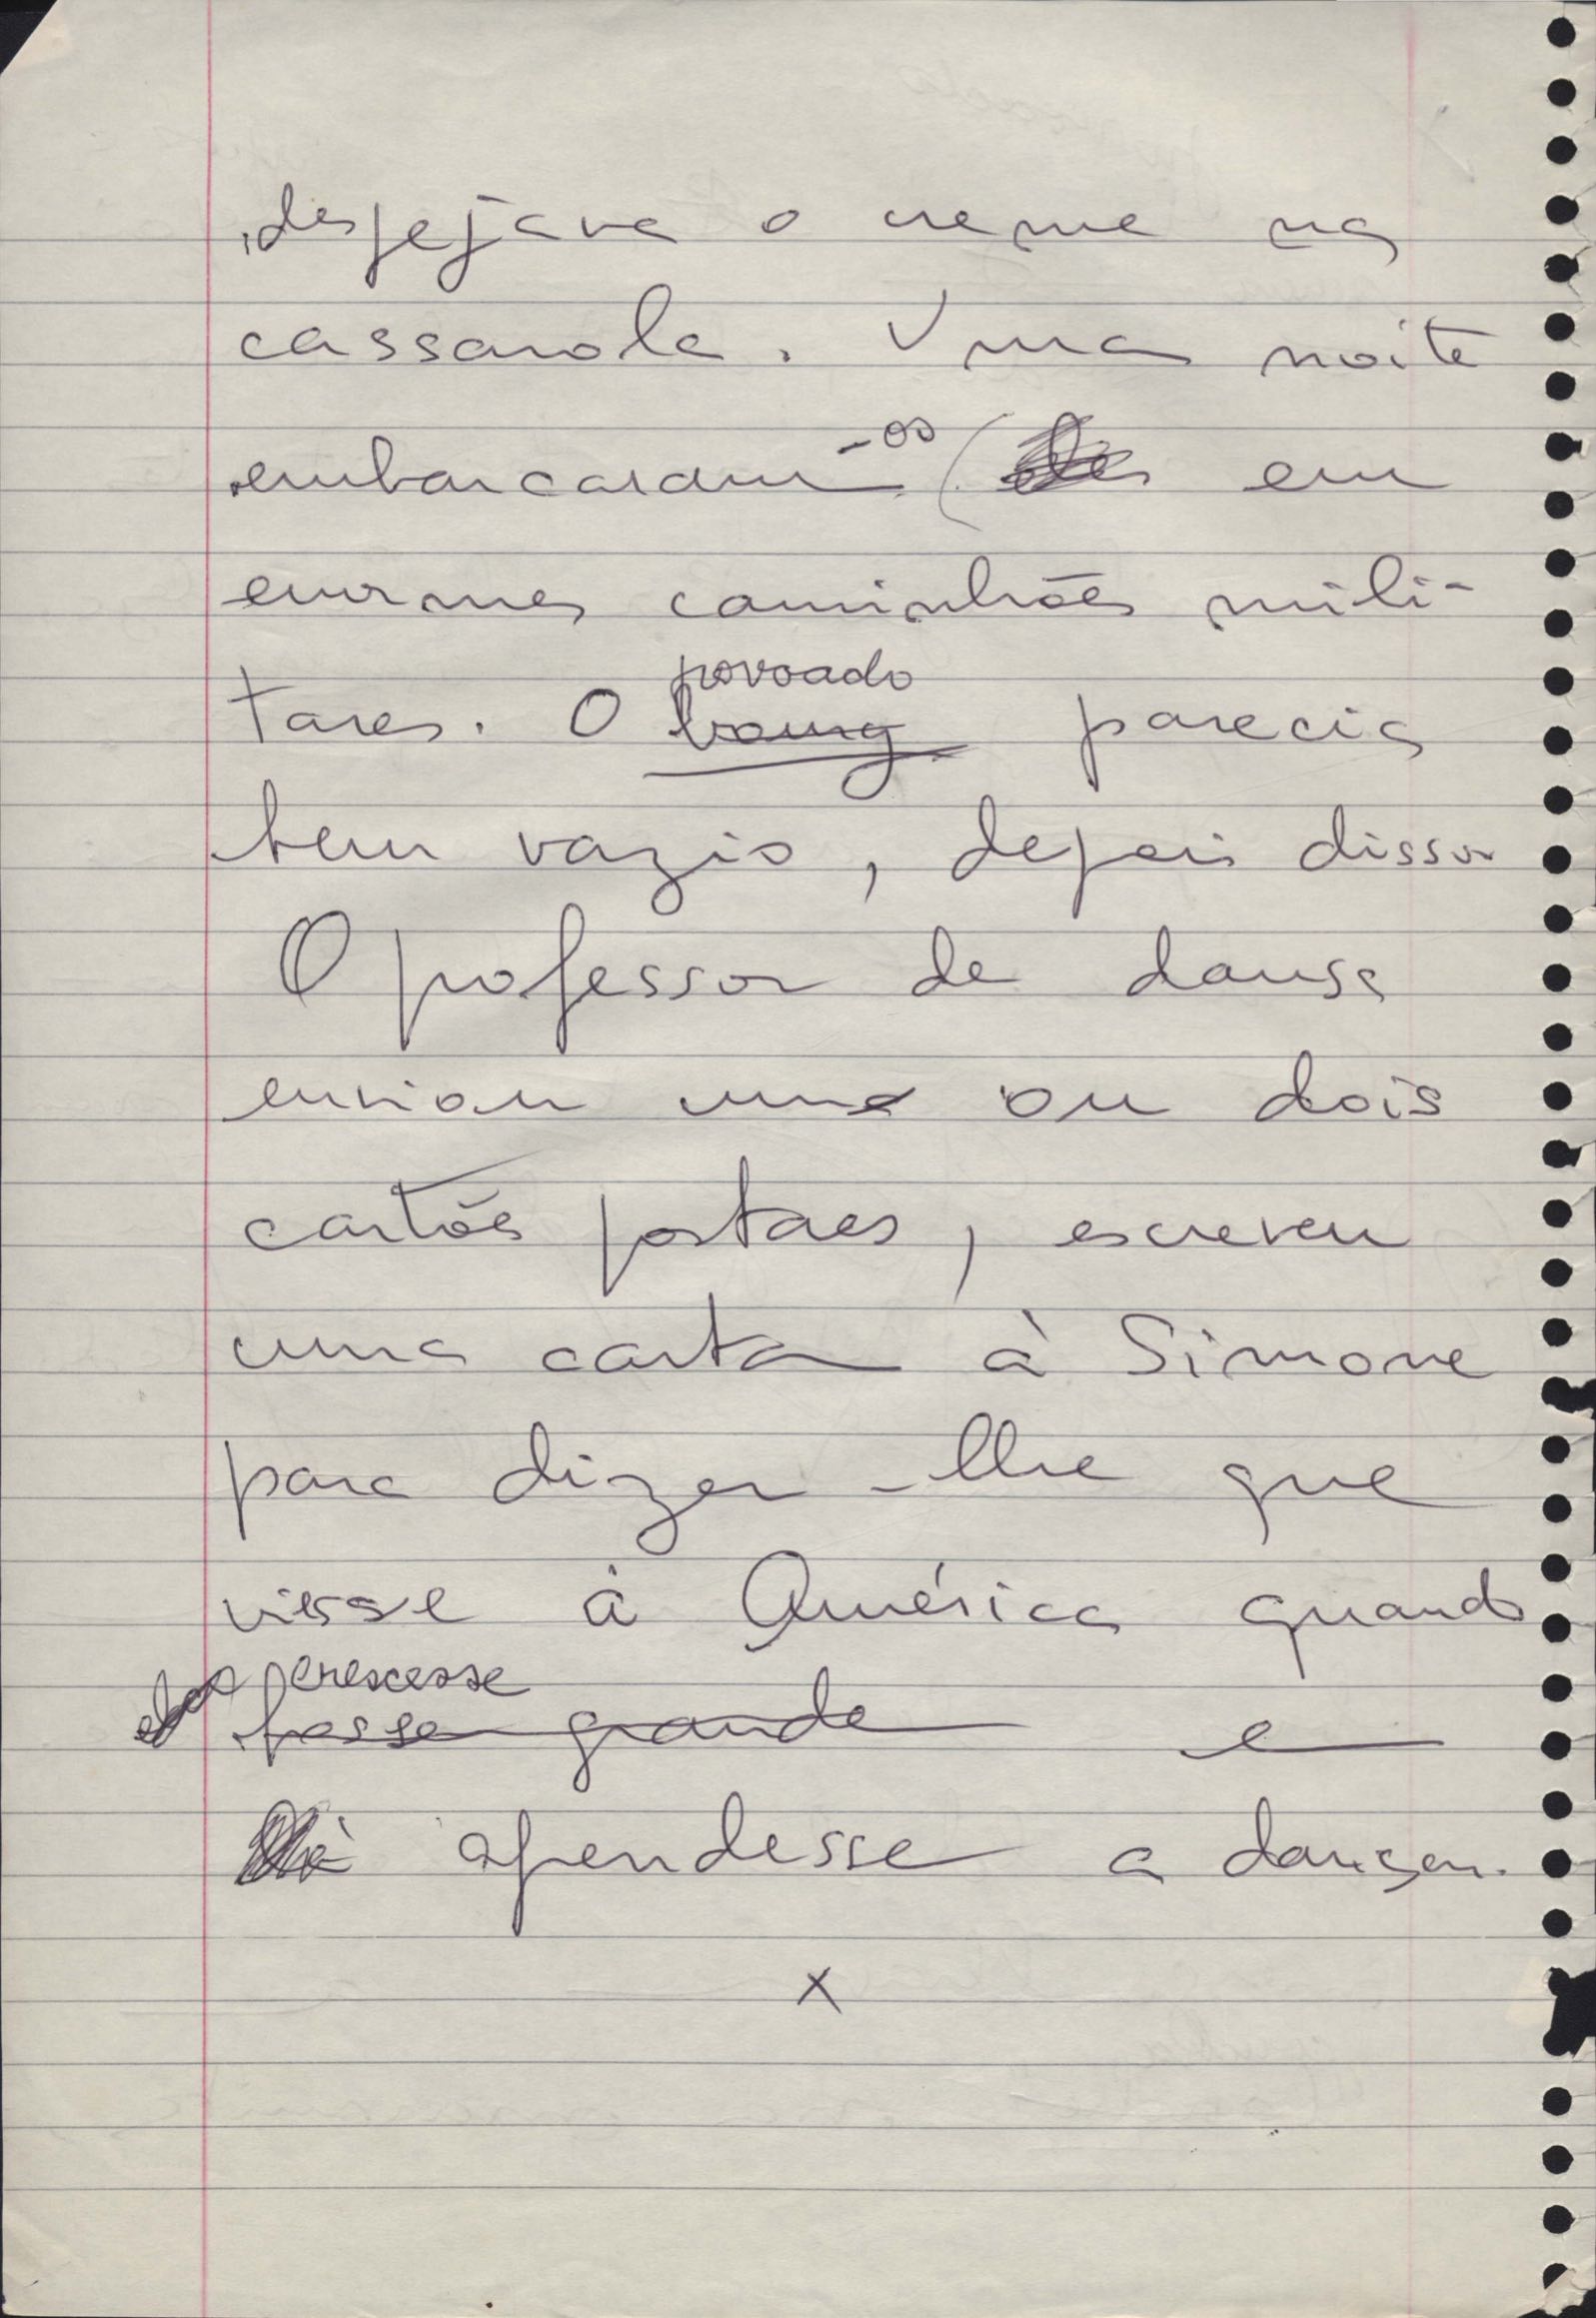 despejava o creme na
cassarola. Uma noite
embarcaram-os em
enormes caminhões mili-
tares. O povoado bourg parecia
bem vazio, depois disso
O professor de dansa
enviou um ou dois
cartões postaes, escreveu
uma carta à Simone
para dizer-lhe que
viesse à América quando
crescesse
fosse grande e
aprendesse a dançar.
x